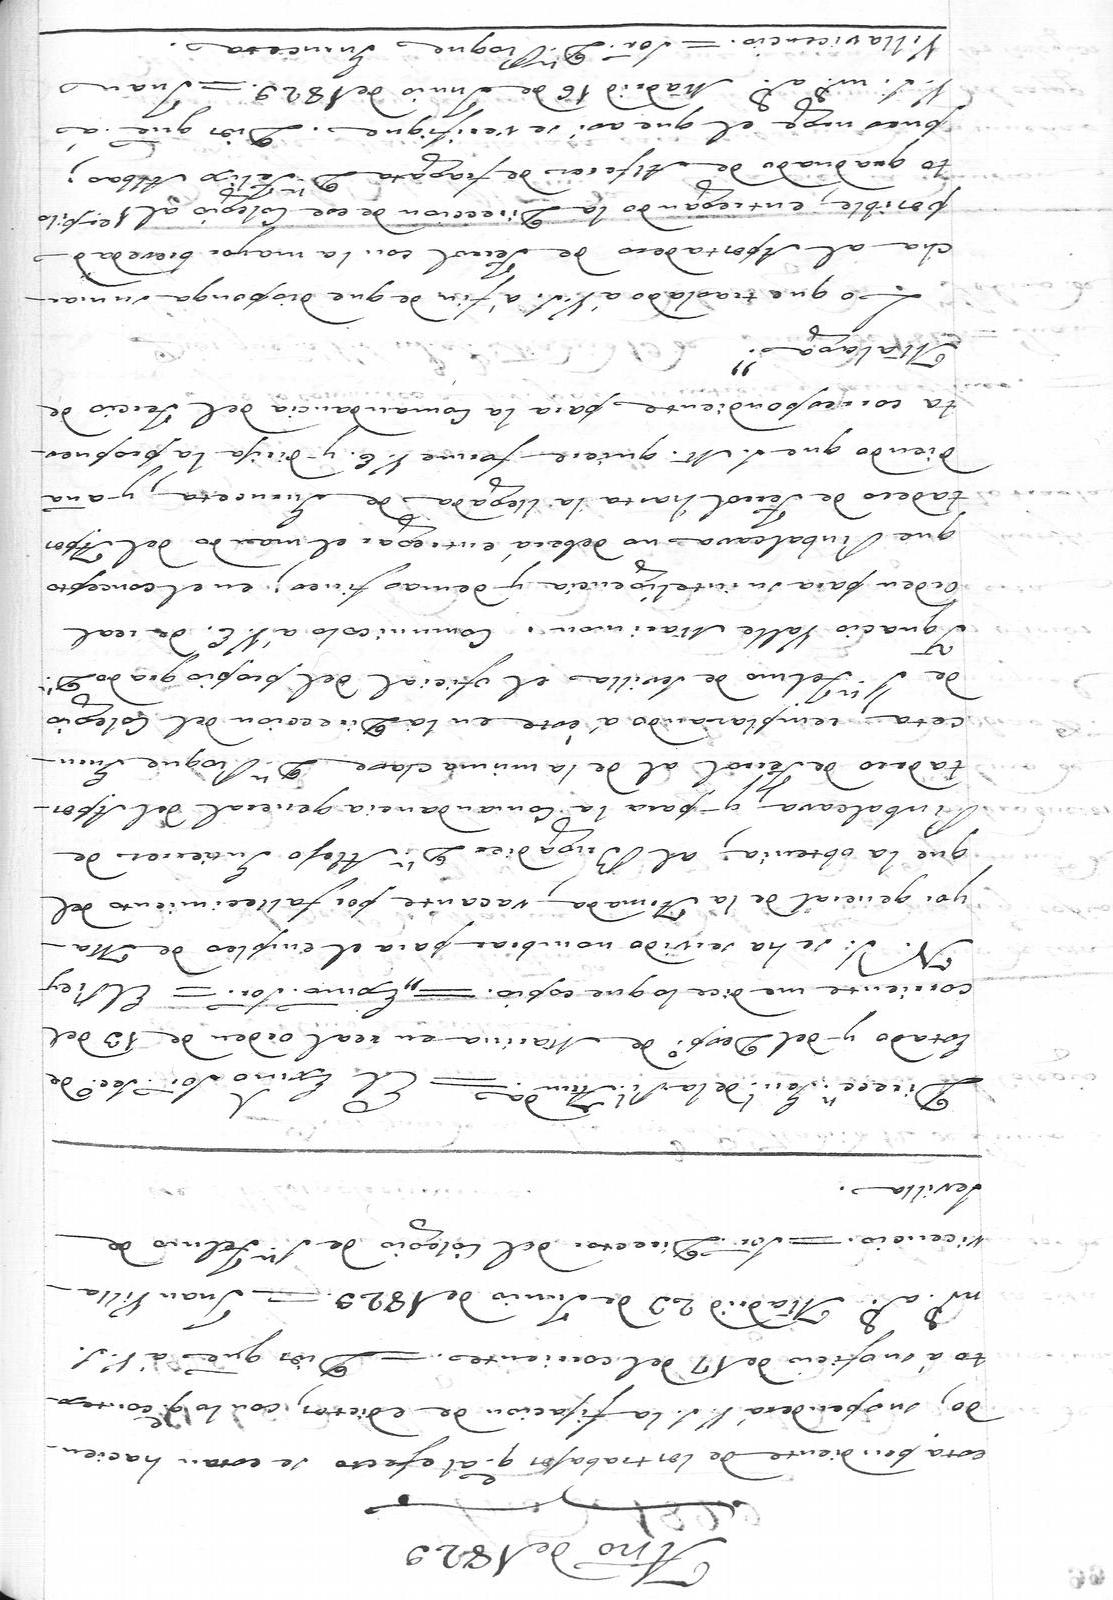 Año de 1829
está pendiente de los trabajos q.e al efecto se están hacien-
do, suspenderá V.S. la fijacion de edictos; con lo q.e contes-
to á su oficio de 17 del corriente. = Dios gue. á V.S.
m.s a.s Madrid 23 de Junio de 1829. = Juan Villa-
vicencio. = Sor. Director del Colegio de S.n Telmo de
Sevilla.
Direcc.n Gen.l de la R.l Arm.da = El Exmo Sor. Sec.o de
Estado y del Desp.o de Marina en real orden de 13 del
corriente me dice lo que copio. = „Exmo. Sor. = El Rey
N. S. se ha servido nombrar para el empleo de Ma-
yor general de la Armada, vacante por fallecimiento del
que la obtenia, al Brigadier D.n Alejo Gutierrez de
Rubalcava, y para la Comandancia general del Apos-
tadero de Ferrol al de la misma clase D.n Roque Guru-
ceta, remplazando á este en la Direccion del Colegio
de S.n Telmo de Sevilla el oficial del propio grado D.n
Ignacio Valle Marimon. Comunicolo á V.E. de real
orden para su inteligencia y demas fines; en el concepto
que Rubalcava no deberá entregar el mando del Apos
tadero de Ferrol hasta la llegada de Guruceta, y aña-
diendo que S. M. quiere forme V. E. y dirija la propues-
ta correspondiente para la Comandancia del Tercio de
Malaga."
Lo que traslado á V.S. á fin de que disponga su mar-
cha al Apostadero de Ferrol con la mayor brevedad
posible, entregando la Direccion de ese Colegio al Tenien-
to graduado de Alferez de fragata D.n Felix Albao;
pues urge el que así se verifique. Dios gue. á
V.S. m.s a.s Madrid 16 de Junio de 1829. = Juan
Villavicencio. = Sor. D.n Roque Guruceta.